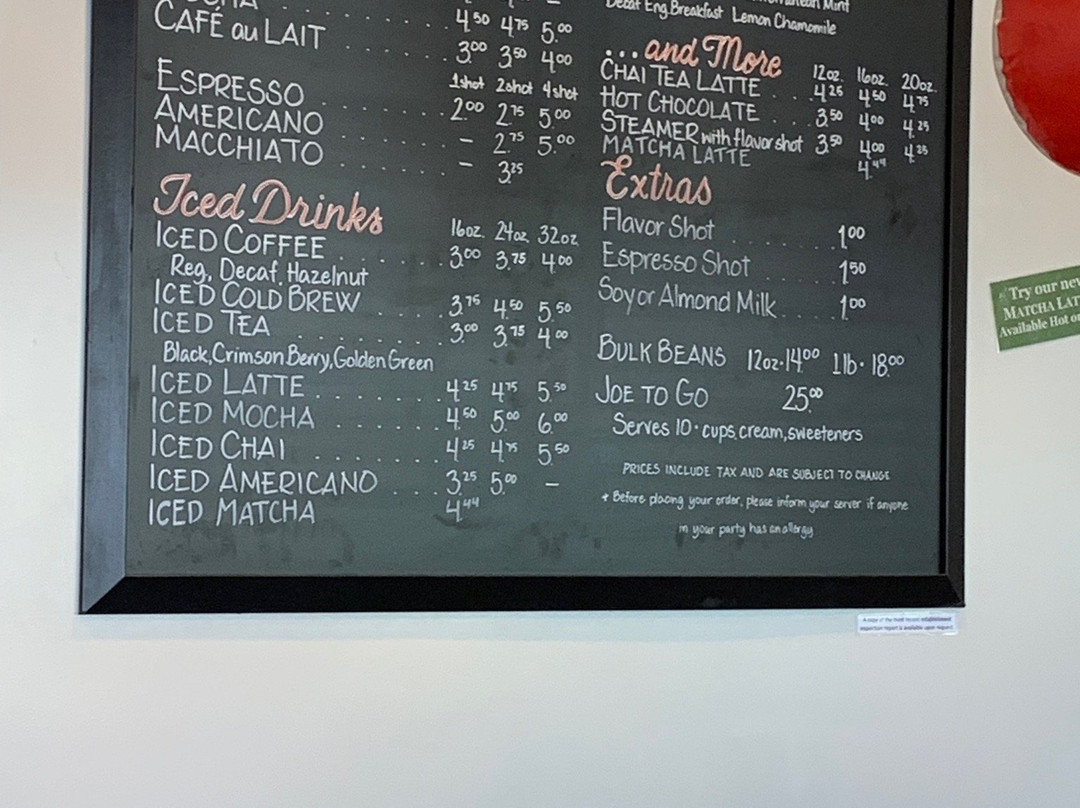 4.50 4.75 5.00
CAFÉ au LAIT . . . . . . 3.00 3.50 4.00
1shot 2shot 4shot
ESPRESSO . . . . . . 2.00 2.75 5.00
AMERICANO . . . . . – 2.75 5.00
MACCHIATO . . . . . – 3.25
Iced Drinks
16oz. 24oz. 32oz.
ICED COFFEE . . . . . . 3.00 3.75 4.00
Reg, Decaf, Hazelnut
ICED COLD BREW . . . . 3.75 4.50 5.50
ICED TEA . . . . . . . . 3.00 3.75 4.00
Black, Crimson Berry, Golden Green
ICED LATTE . . . . . . . 4.25 4.75 5.50
ICED MOCHA . . . . . . 4.50 5.00 6.00
ICED CHAI . . . . . . . 4.25 4.75 5.50
ICED AMERICANO . . . 3.25 5.00 –
ICED MATCHA 4.44
Decaf Eng. Breakfast Lemon Chamomile
...and More
12oz. 16oz. 20oz.
CHAI TEA LATTE . . . 4.25 4.50 4.75
HOT CHOCOLATE . . . 3.50 4.00 4.25
STEAMER with flavor shot 3.50 4.00 4.25
MATCHA LATTE 4.44
Extras
Flavor Shot . . . . . . 1.00
Espresso Shot . . . . 1.50
Soy or Almond Milk . . . . 1.00
BULK BEANS 12oz · 14.00 1lb · 18.00
JOE TO GO 25.00
Serves 10 · cups, cream, sweeteners
PRICES INCLUDE TAX AND ARE SUBJECT TO CHANGE
* Before placing your order, please inform your server if anyone
in your party has an allergy
Try our new
MATCHA LAT
Available Hot or